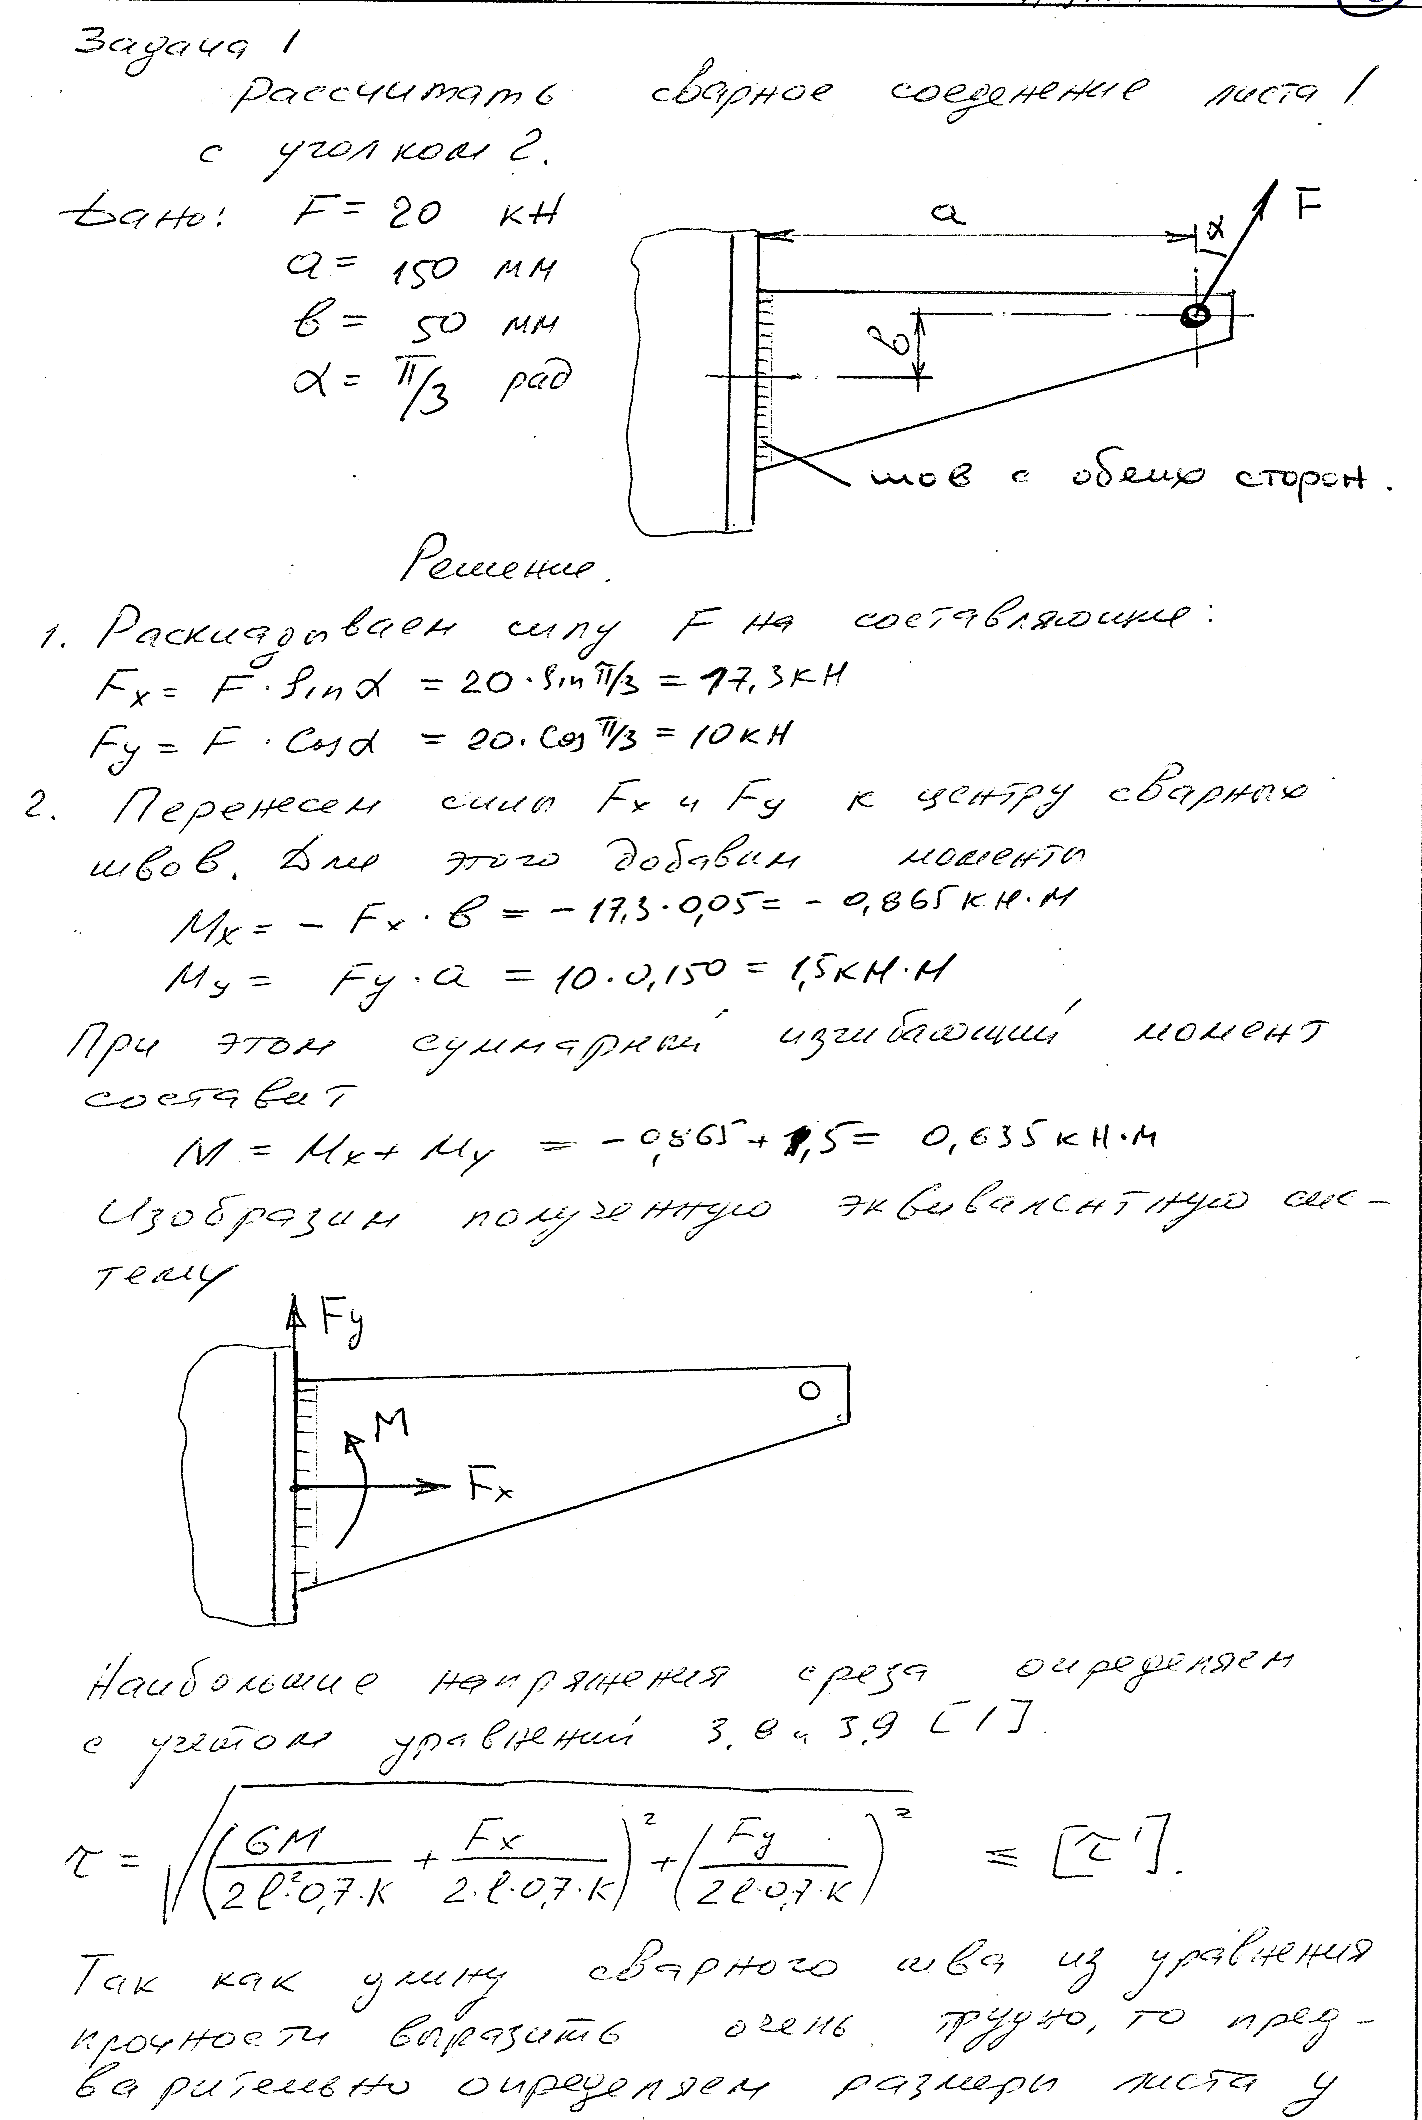 Задача 1
Рассчитать сварное соеденение листа 1
с уголком 2.
Дано: F = 20 кН
a = 150 мм
в = 50 мм
α = π/3 рад
a
α
F
в
шов с обеих сторон.
Решение.
1. Раскладываем силу F на составляющие:
Fx = F · Sin α = 20 · Sin π/3 = 17,3 кН
Fy = F · Cos α = 20 · Cos π/3 = 10 кН
2. Перенесем силы Fx и Fy к центру сварных
швов. Для этого добавим моменты
Mx = - Fx · в = - 17,3 · 0,05 = - 0,865 кН·м
My = Fy · a = 10 · 0,150 = 1,5 кН·м
При этом суммарный изгибающий момент
составит
M = Mx + My = - 0,865 + 1,5 = 0,635 кН·м
Изобразим полученную эквивалентную сис-
тему
Fy
M
Fx
Наибольшие напряжения среза определяем
с учетом уравнений 3.8 и 3.9 [1].
τ = √((6M / 2l²·0,7·К + Fx / 2·l·0,7·К)² + (Fy / 2l·0,7·К)²) ≤ [τ'].
Так как длину сварного шва из уравнения
прочности выразить очень трудно, то пред-
варительно определяем размеры листа у